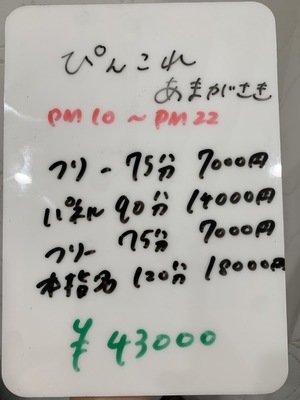 ぴんこれ
あまがさき
PM 10 ~ PM 22
フリー 75分 7000円
パネル 90分 14000円
フリー 75分 7000円
本指名 120分 18000円
¥43000